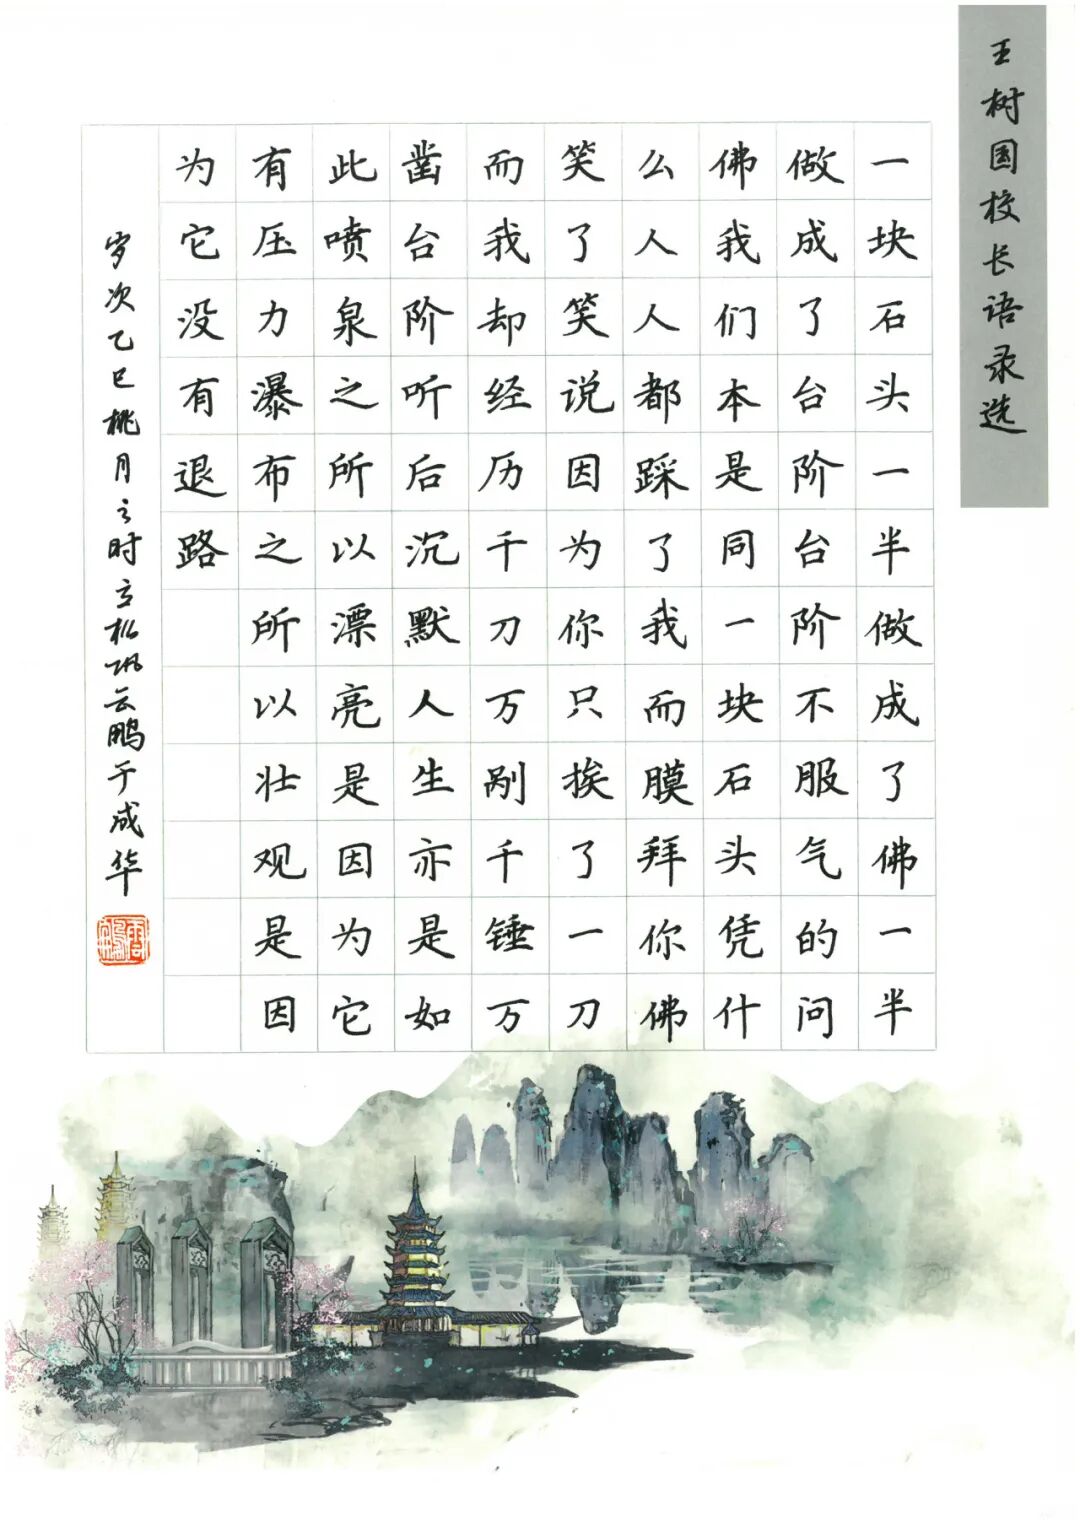 王树国校长语录选
一块石头一半做成了佛一半
做成了台阶台阶不服气的问
佛我们本是同一块石头凭什
么人人都踩了我而膜拜你佛
笑了笑说因为你只挨了一刀
而我却经历千刀万剐千锤万
凿台阶听后沉默人生亦是如
此喷泉之所以漂亮是因为它
有压力瀑布之所以壮观是因
为它没有退路
岁次乙巳桃月之时云鹏于成华